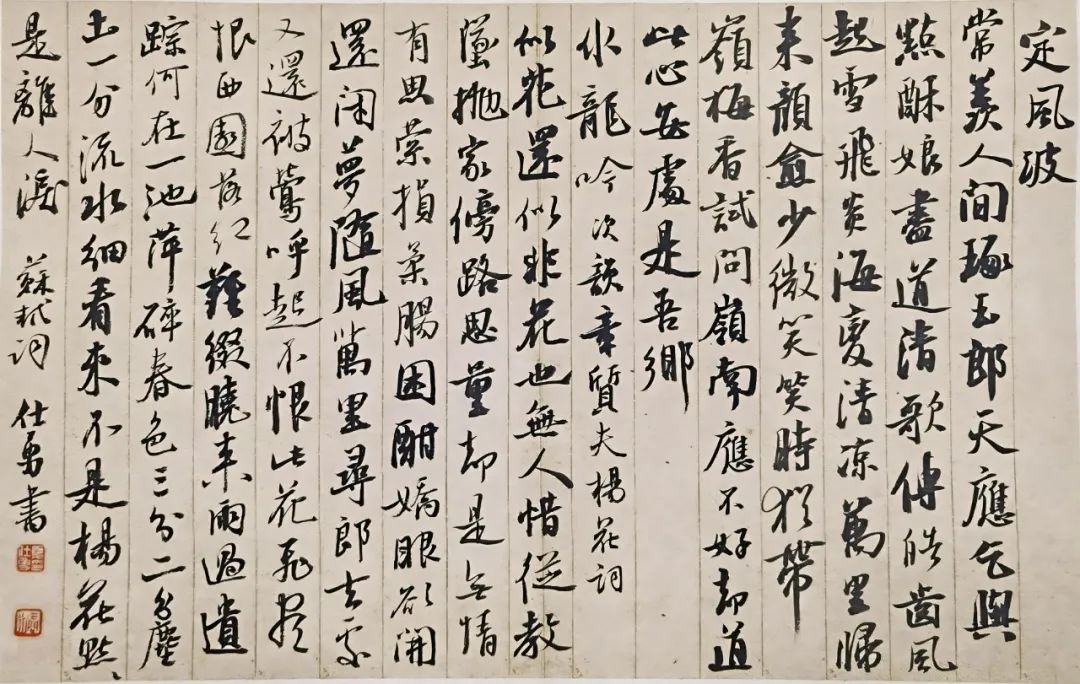 定風波
常羨人間琢玉郎天應乞與
點酥娘盡道清歌傳皓齒風
起雪飛炎海變清涼萬里歸
來顏愈少微笑笑時猶帶
嶺梅香試問嶺南應不好却道
此心安處是吾鄉
水龍吟次韻章質夫楊花詞
似花還似非花也無人惜從教
墜拋家傍路思量却是無情
有思縈損柔腸困酣嬌眼欲開
還閉夢隨風萬里尋郎去處
又還被鶯呼起不恨此花飛盡
恨西園落紅難綴曉來雨過遺
踪何在一池萍碎春色三分二分塵
土一分流水細看來不是楊花點點
是離人淚 蘇軾詞 仕勇書